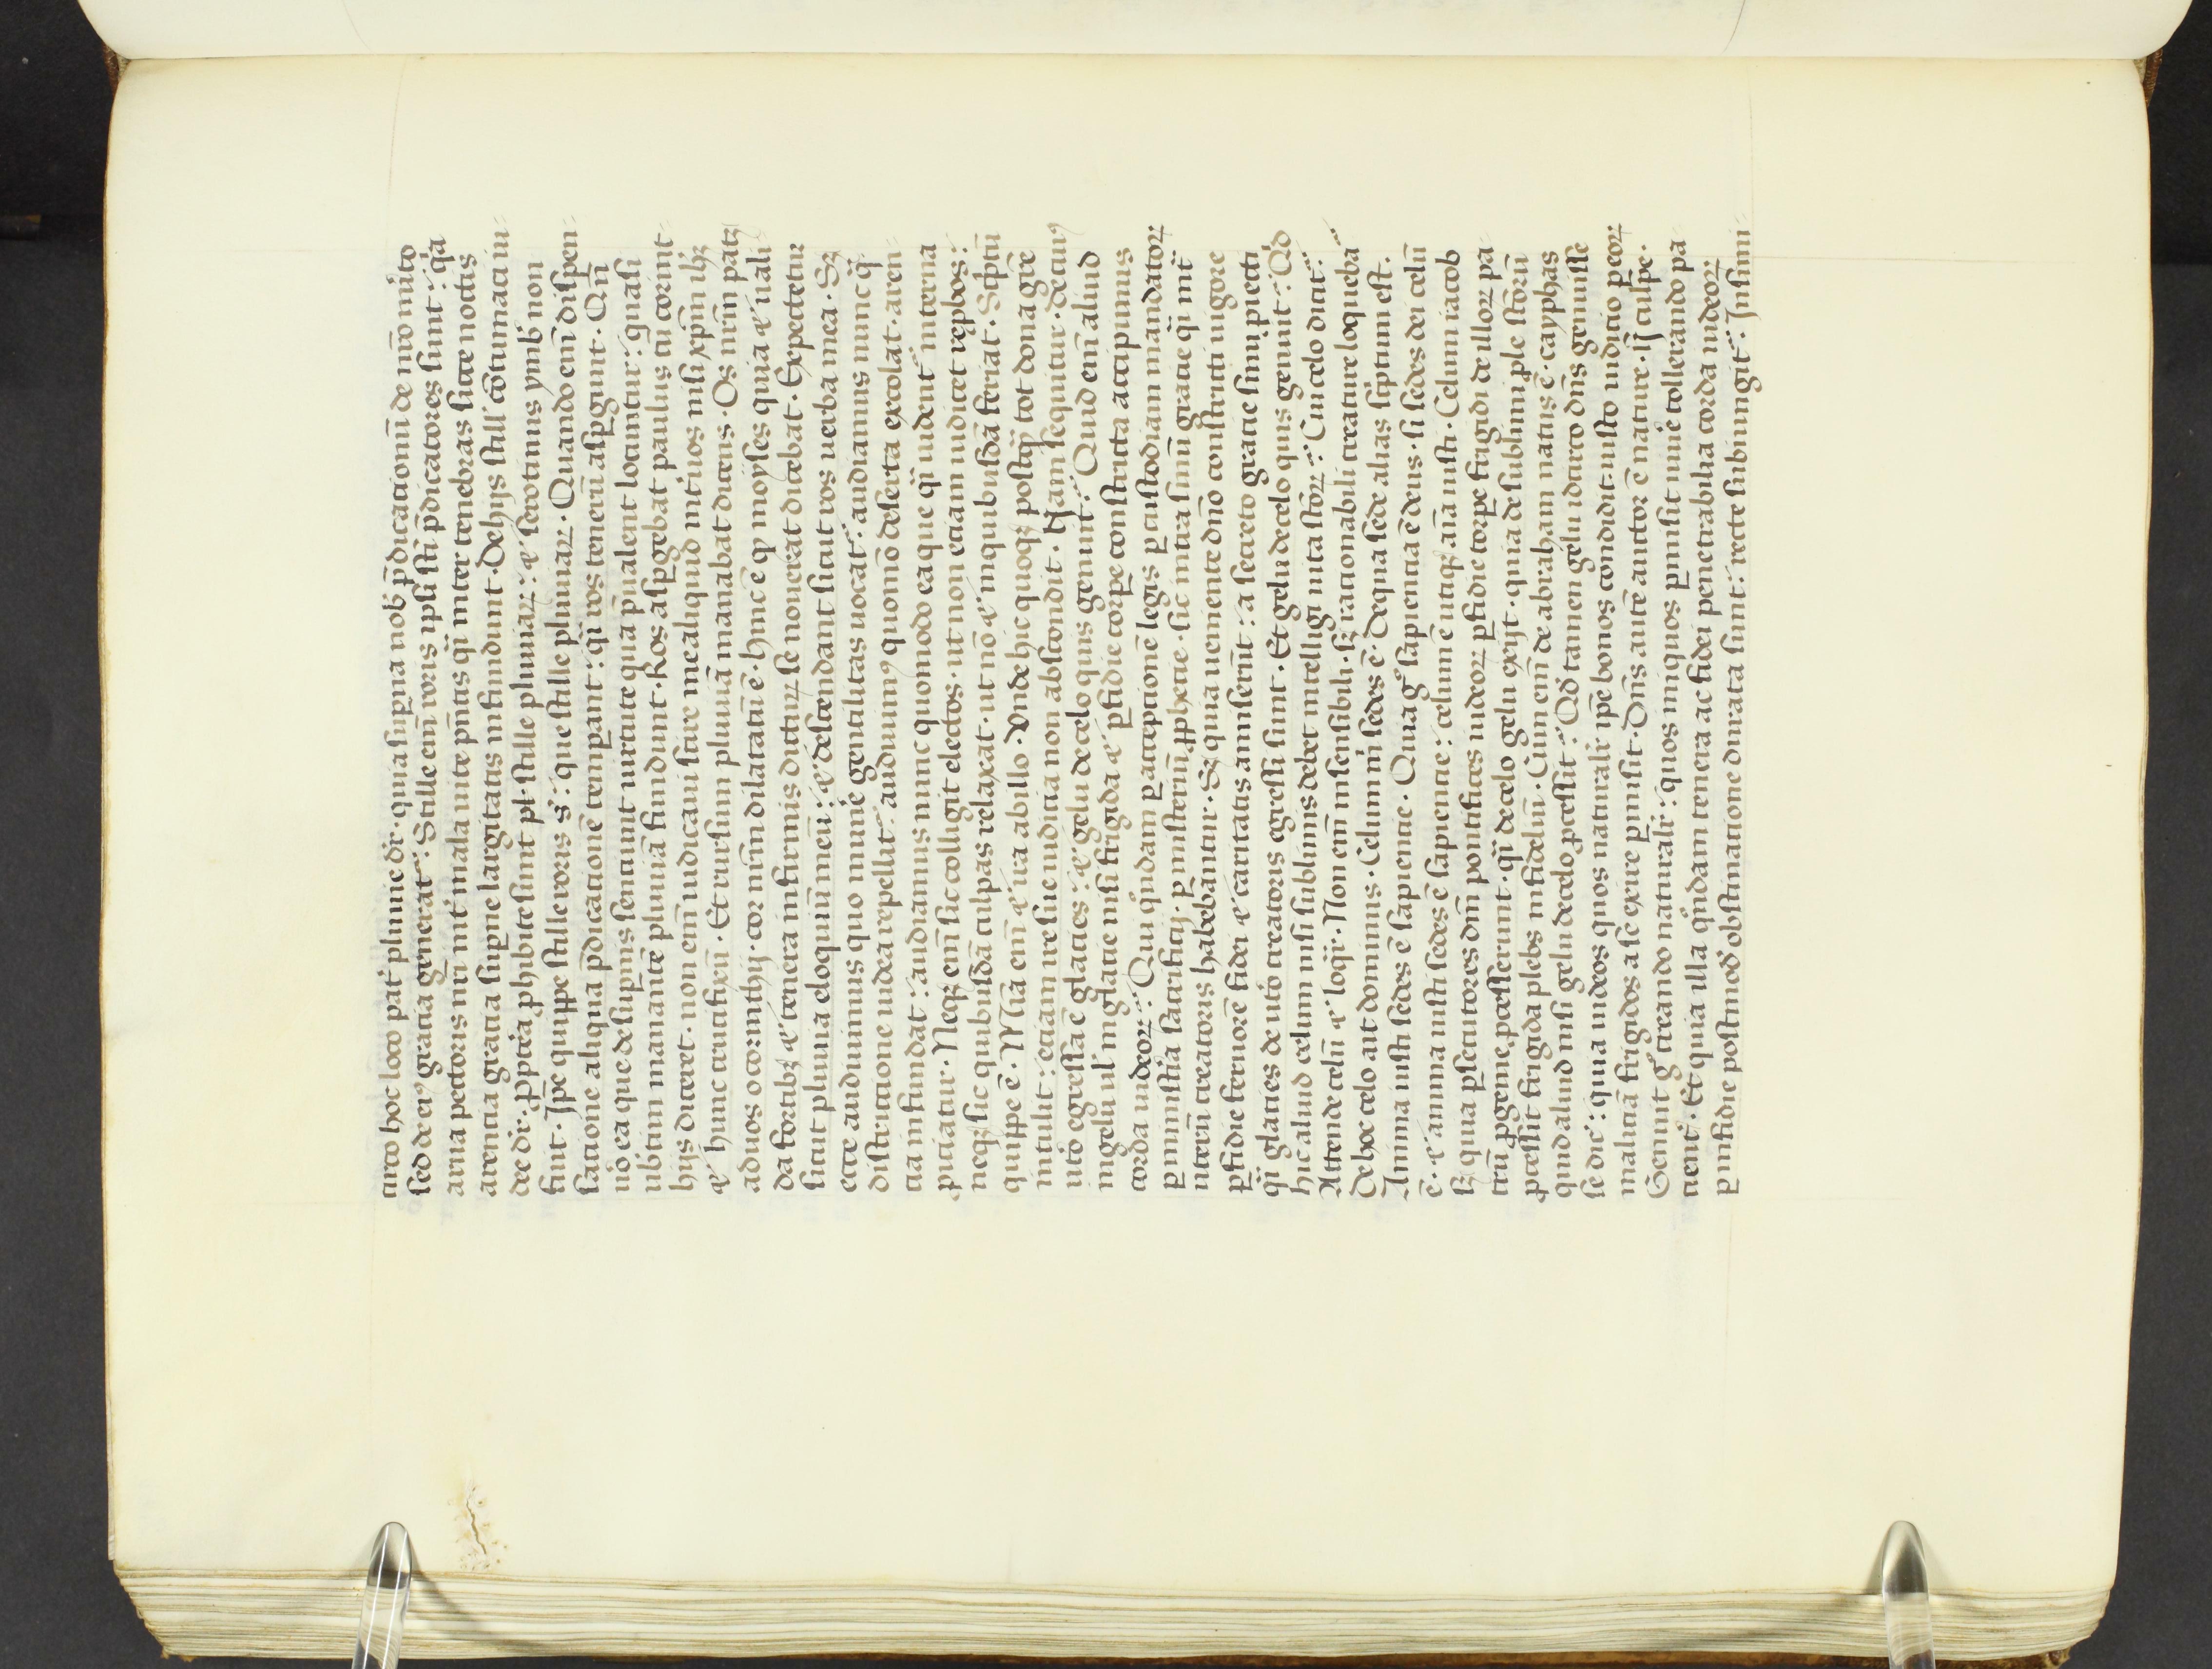 circo hoc loco pat᷑ pluuie dr̄. quia suꝑna nob᷑ p̄dicationū de nr̄o mīto
sed de eiꝰ gratia generat᷑. Stille em̄ roris ipsi sc̄i p̄dicatores sunt: q̇a
arua pectoris nr̄i int᷑ mala uite pn̄tis q̄i inter tenebras sicce noctis
arentia gratia suꝑne largitatis infundunt. De hijs still᷑ cōtumaci iu⸗
dee dr̄. ꝓpt᷑ea ꝓhibite sunt pl᷑ stille pluuiaꝝ: ⁊ serotinus ymb᷑ non
fiuit. Ip̄e quippe stille roris s᷑: que stille pluuiaꝝ. Quando em̄ dispen⸗
satione aliqua p̄dicationē temꝑant: q̄i ros teneru᷑ asꝑgunt. Qn̄
uo᷑ ea que de suꝑnis sentiunt uirtute qua p̄ualent locuntur: quasi
ubtim manantē pluuiā fundunt. Ros asꝑgebat paulus cū corint⸗
hijs diceret. non em̄ iudicaui scire me aliquid int᷑ uos nisi xpm̄ ihꝫ
⁊ hunc crucifixū. Et rursum pluuiā manabat dicens. Os nr̄m patꝫ
ad uos o corinthij. cor nr̄m dilatatū ē. Hinc ē ꝙ moyses quia ⁊ uali
da fortibꝫ ⁊ tenera infirmis dicturꝫ se nouerat dicebat. Expectetur
sicut pluuia eloquiū meū: ⁊ descendant sicut ros uerba mea. Sꝫ
ecce audiuimus quo mune᷑ gentilitas uocat᷑. audiamus nunc q̄
districtione iudea repellit᷑. audiuimꝰ quomō deserta excolat. aren⸗
cia infundat: audiamus nunc quomodo ea que q̄i uident᷑ interna
ꝓiciatur. Neqꝫ em̄ sic colligit electos. ut non etiam iudicet reꝓbos:
neqꝫ sic quibusdā culpas relaxat. ut nō ⁊ in quibusdā feriat. Scͥptū
quippe ē. Mīa em̄ ⁊ ira ab illo. Vnde hic quoqꝫ postqȳ tot dona grē
intulit: etiam ire sue iudicia non abscondit. Nam sequitur. de cuiꝰ
ut᷑o egressa ē glacies: ⁊ gelu de celo quis genuit. Quid em̄ aliud
in gelu ul᷑ in glacie nisi frigida ⁊ ꝑfidie torpe constricta accipimus
corda iudeoꝝ. Qui qͦndam ꝑ acceptionē legis ꝑ custodiam mandatoꝝ
ꝑ ministīa sacrificij. ꝑ misteriū ꝓphetie. sic intra sinū gratie q̄i int᷑
uterū creatoris habebantur. Sꝫ quia ueniente dn̄o constricti uigore
ꝑfidie feruorē fidei ⁊ caritatis amiserūt: a secreto gratie sinu ꝓiecti
q̄i glacies de ut᷑o creatoris egressi sunt. Et gelu de celo quis genuit. Qd᷑
hic aliud celum nisi sublimis debet intelligi uita sc̄oꝝ. Cui celo dicit᷑.
Attende celū ⁊ loqr̄. Non em̄ insensibili. sꝫ rationabili creature loqueba᷑.
De hoc celo ait dominus. Celum m᷑ sedes ē. De qua sede alias scͥptum est.
Anima iusti sedes ē sapientie. Quia gͦ sapientia ē deus. si sedes dei celū
ē. ⁊ anima iusti sedes ē sapientie: celum ē utiqꝫ aīa iusti. Celum iacob
sꝫ quia ꝑsecutores dn̄i pontifices iudeoꝝ ꝑfidie torpe frigidi de illoꝝ pa
trū ꝓgenie ꝓcesserunt. q̄i de celo gelu exijt. quia de sublimi ꝓle sc̄orū
ꝓcessit frigida plebs infideliū. Cum em̄ de abraham natus ē. cayphas
quid aliud nisi gelu de celo ꝓcessit. Qd᷑ tamen gelu idcirco dn̄s genuisse
se dic᷑: quia iudeos quos naturalr̄ ip̄e bonos condidit. iusto iudicio ꝑ eoꝝ
maliciā frigidos a se exire ꝑmisit. Dn̄s autē auctor ē nature. n̄ culpe.
Genuit gͦ creando naturalr̄: quos iniquos ꝑmisit uiue᷑ tollerando pa
tient᷑. Et quia illa qͦndam tenera ac fidei penetrabilia corda iudeoꝝ
ꝑ infidie postmod᷑ obstinatione durata sunt: recte subiungit᷑. In simi⸗